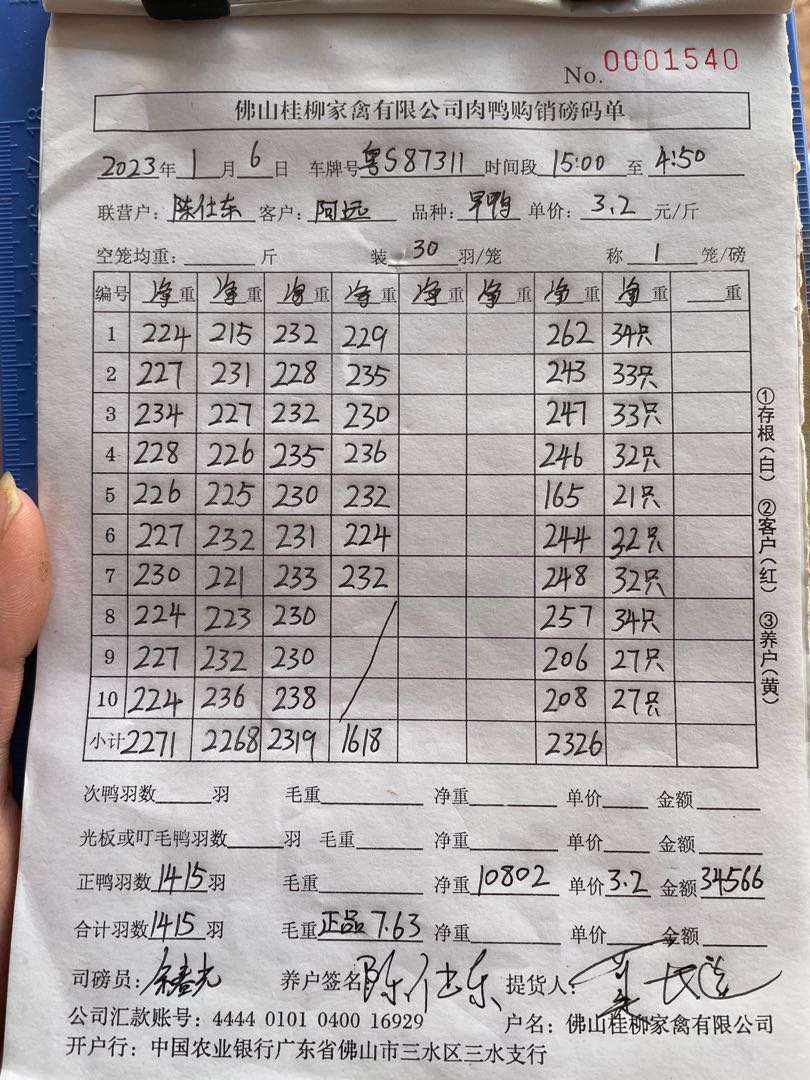 No. 0001540
佛山桂柳家禽有限公司肉鸭购销磅码单
2023年 1 月 6 日 车牌号 粤S87311 时间段 15:00 至 4:50
联营户: 陈仕东 客户: 阿远 品种: 早鸭 单价: 3.2 元/斤
空笼均重: 斤 装 30 羽/笼 称 1 笼/磅
编号 净重 净重 净重 净重 净重 净重 净重 净重 重
1 224 215 232 229 262 34只
2 227 231 228 235 243 33只
3 234 227 232 230 247 33只
4 228 226 235 236 246 32只
5 226 225 230 232 165 21只
6 227 232 231 224 244 32只
7 230 221 233 232 248 32只
8 224 223 230 257 34只
9 227 232 230 206 27只
10 224 236 238 208 27只
小计 2271 2268 2319 1618 2326
次鸭羽数 羽 毛重 净重 单价 金额
光板或叮毛鸭羽数 羽 毛重 净重 单价 金额
正鸭羽数 1415 羽 毛重 净重 10802 单价 3.2 金额 34566
合计羽数 1415 羽 毛重 正品 7.63 净重 单价 金额
司磅员: 养户签名 陈仕东 提货人:
公司汇款账号: 4444 0101 0400 16929 户名: 佛山桂柳家禽有限公司
开户行: 中国农业银行广东省佛山市三水区三水支行
①存根(白) ②客户(红) ③养户(黄)